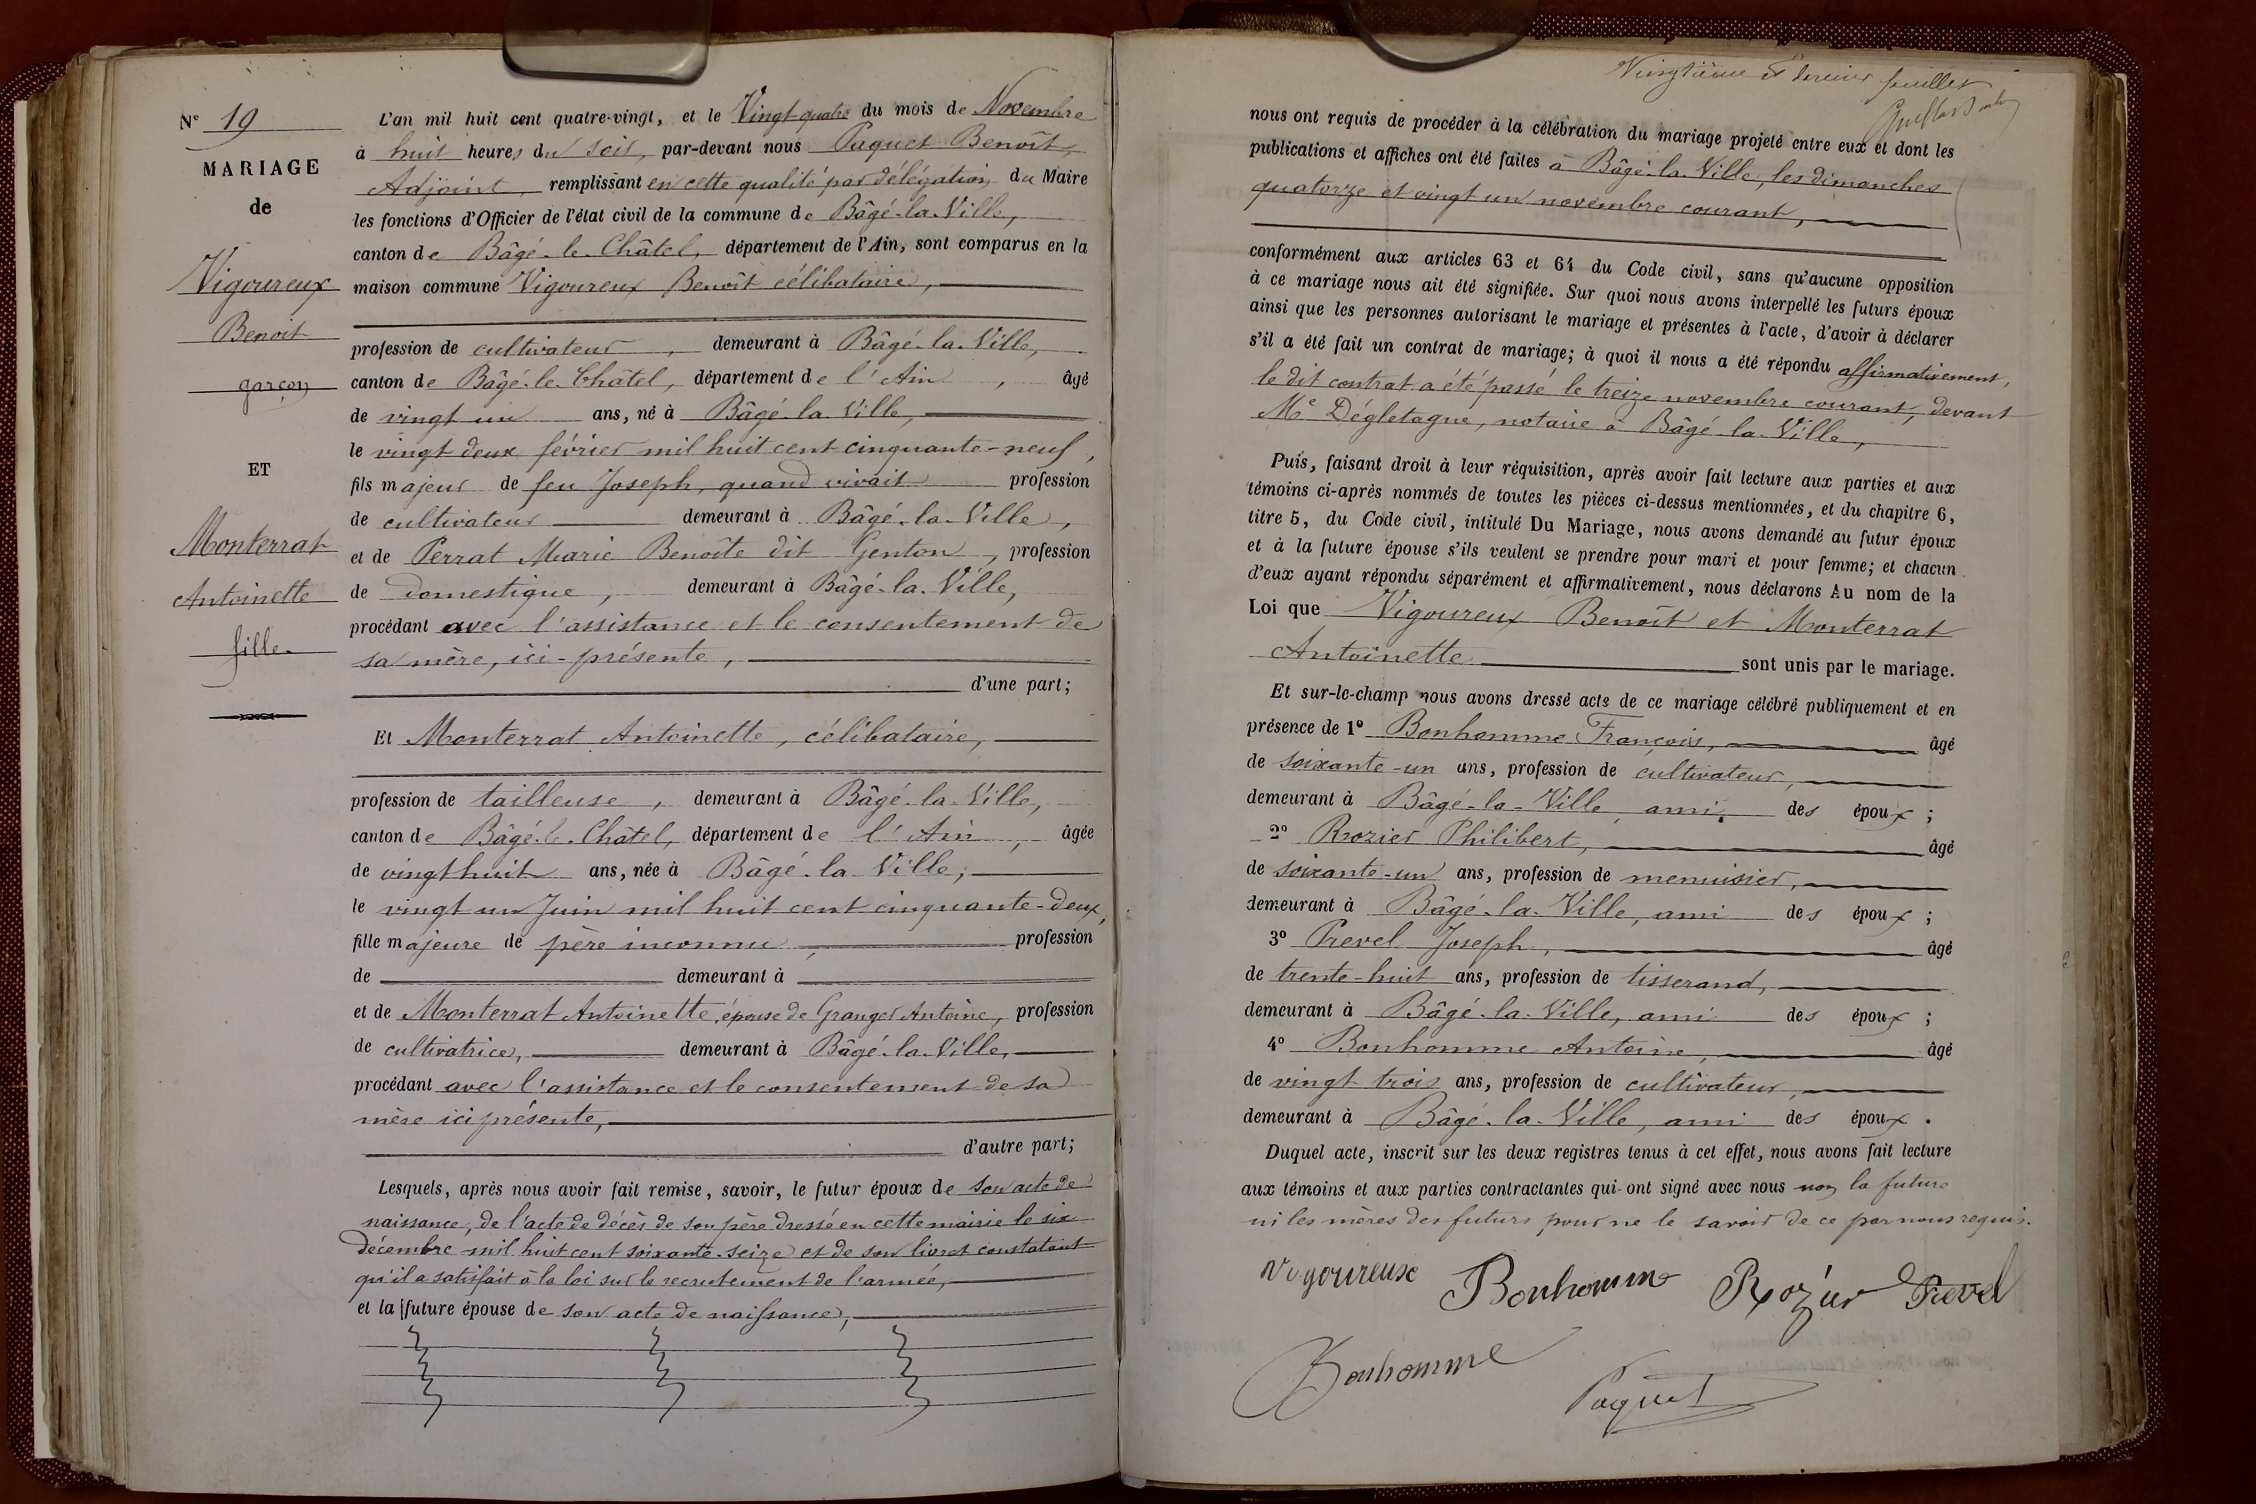 N° 19
MARIAGE
de
Vigoureux
Benoit
garçon
ET
Monterrat
Antoinette
fille
L'an mil huit cent quatre-vingt, et le Vingt-quatre du mois de Novembre
à huit heures du soir, par-devant nous Paquet Benoît,
Adjoint, remplissant en cette qualité par délégation du Maire
les fonctions d'Officier de l'état civil de la commune de Bâgé-la-Ville,
canton de Bâgé-le-Châtel, département de l'Ain, sont comparus en la
maison commune Vigoureux Benoît célibataire,
profession de cultivateur, demeurant à Bâgé-la-Ville,
canton de Bâgé-le-Châtel, département de l'Ain, âgé
de vingt un ans, né à Bâgé-la-Ville,
le vingt deux février mil huit cent cinquante-neuf,
fils majeur de feu Joseph, quand vivait profession
de cultivateur demeurant à Bâgé-la-Ville,
et de Perrat Marie Benoîte dit Genton, profession
de domestique, demeurant à Bâgé-la-Ville,
procédant avec l'assistance et le consentement de
sa mère, ici-présente,
d'une part;
Et Monterrat Antoinette, célibataire,
profession de tailleuse, demeurant à Bâgé-la-Ville,
canton de Bâgé-le-Châtel, département de l'Ain, âgée
de vingt huit ans, née à Bâgé-la-Ville,
le vingt un Juin mil huit cent cinquante-deux,
fille majeure de père inconnu, profession
de demeurant à
et de Monterrat Antoinette, épouse de Granger Antoine, profession
de cultivatrice, demeurant à Bâgé-la-Ville,
procédant avec l'assistance et le consentement de sa
mère ici présente,
d'autre part;
Lesquels, après nous avoir fait remise, savoir, le futur époux de son acte de
naissance, de l'acte de décès de son père dressé en cette mairie le six
décembre mil huit cent soixante-seize et de son livret constatant
qu'il a satisfait à la loi sur le recrutement de l'armée,
et la future épouse de son acte de naissance,
Vingtième et dernier feuillet
nous ont requis de procéder à la célébration du mariage projeté entre eux et dont les
publications et affiches ont été faites à Bâgé-la-Ville, les dimanches
quatorze et vingt un novembre courant,
conformément aux articles 63 et 64 du Code civil, sans qu'aucune opposition
à ce mariage nous ait été signifiée. Sur quoi nous avons interpellé les futurs époux
ainsi que les personnes autorisant le mariage et présentes à l'acte, d'avoir à déclarer
s'il a été fait un contrat de mariage; à quoi il nous a été répondu affirmativement,
le dit contrat a été passé le treize novembre courant, devant
Me Dégletagne, notaire à Bâgé-la-Ville,
Puis, faisant droit à leur réquisition, après avoir fait lecture aux parties et aux
témoins ci-après nommés de toutes les pièces ci-dessus mentionnées, et du chapitre 6,
titre 5, du Code civil, intitulé Du Mariage, nous avons demandé au futur époux
et à la future épouse s'ils veulent se prendre pour mari et pour femme; et chacun
d'eux ayant répondu séparément et affirmativement, nous déclarons Au nom de la
Loi que Vigoureux Benoît et Monterrat
Antoinette sont unis par le mariage.
Et sur-le-champ nous avons dressé acte de ce mariage célébré publiquement et en
présence de 1° Bonhomme François, âgé
de soixante-un ans, profession de cultivateur,
demeurant à Bâgé-la-Ville, ami des époux;
2° Rozier Philibert, âgé
de soixante-un ans, profession de menuisier,
demeurant à Bâgé-la-Ville, ami des époux;
3° Prevel Joseph, âgé
de trente-huit ans, profession de tisserand,
demeurant à Bâgé-la-Ville, ami des époux;
4° Bonhomme Antoine, âgé
de vingt trois ans, profession de cultivateur,
demeurant à Bâgé-la-Ville, ami des époux.
Duquel acte, inscrit sur les deux registres tenus à cet effet, nous avons fait lecture
aux témoins et aux parties contractantes qui ont signé avec nous non la future
ni les mères des futurs pour ne le savoir de ce par nous requis.
Vigoureux Bonhomme Rozier Prevel
Bonhomme
Paquet